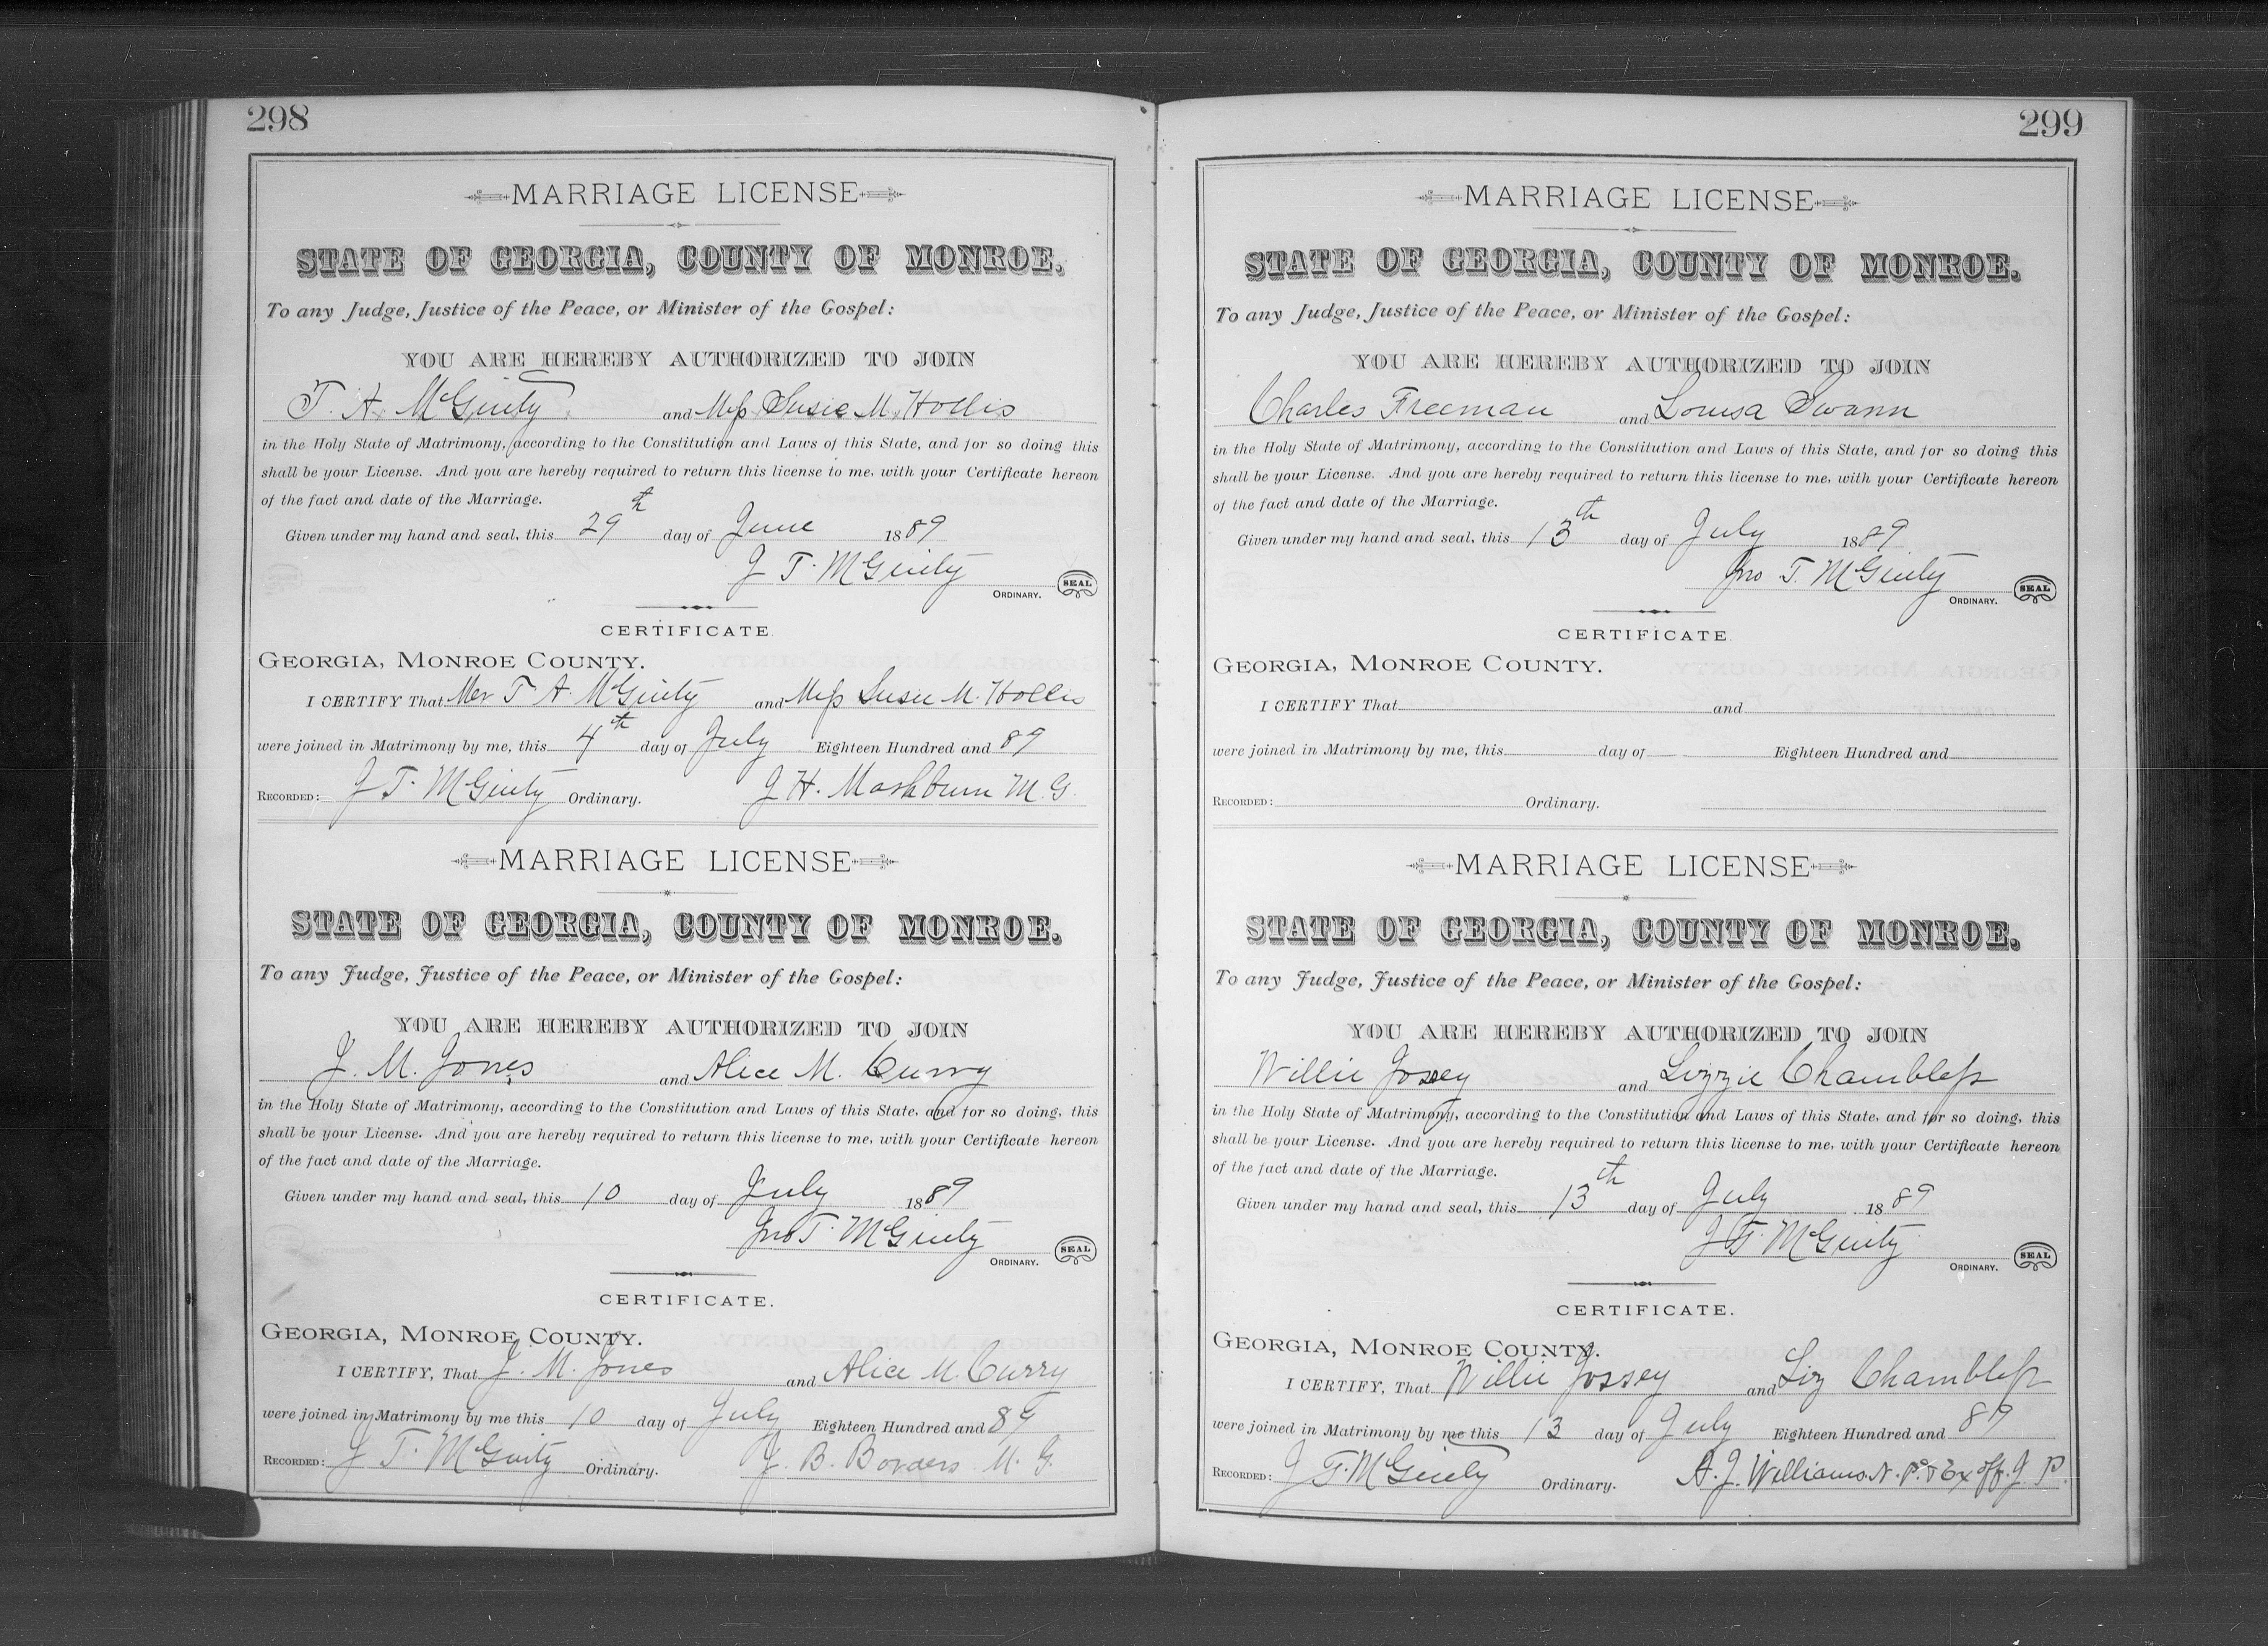 298
MARRIAGE LICENSE
STATE OF GEORGIA, COUNTY OF MONROE.
To any Judge, Justice of the Peace, or Minister of the Gospel:
YOU ARE HEREBY AUTHORIZED TO JOIN
T. A. McGinty and Miss Susie M. Hollis
in the Holy State of Matrimony, according to the Constitution and Laws of this State, and for so doing this
shall be your License. And you are hereby required to return this license to me, with your Certificate hereon
of the fact and date of the Marriage.
Given under my hand and seal, this 29th day of June 1889
J T. McGinty
ORDINARY. SEAL
CERTIFICATE.
GEORGIA, MONROE COUNTY.
I CERTIFY That Mr T A. McGinty and Miss Susie M. Hollis
were joined in Matrimony by me, this 4th day of July Eighteen Hundred and 89
RECORDED: J T. McGinty Ordinary. J H. Mashburn M. G.
MARRIAGE LICENSE
STATE OF GEORGIA, COUNTY OF MONROE.
To any Judge, Justice of the Peace, or Minister of the Gospel:
YOU ARE HEREBY AUTHORIZED TO JOIN
J. M. Jones and Alice M. Curry
in the Holy State of Matrimony, according to the Constitution and Laws of this State, and for so doing, this
shall be your License. And you are hereby required to return this license to me, with your Certificate hereon
of the fact and date of the Marriage.
Given under my hand and seal, this 10 day of July 1889
Jno T. McGinty
ORDINARY. SEAL
CERTIFICATE.
GEORGIA, MONROE COUNTY.
I CERTIFY, That J. M. Jones and Alice M. Curry
were joined in Matrimony by me this 10 day of July Eighteen Hundred and 89
RECORDED: J T. McGinty Ordinary. J. B. Borders M. G.
299
MARRIAGE LICENSE
STATE OF GEORGIA, COUNTY OF MONROE.
To any Judge, Justice of the Peace, or Minister of the Gospel:
YOU ARE HEREBY AUTHORIZED TO JOIN
Charles Freeman and Louisa Swann
in the Holy State of Matrimony, according to the Constitution and Laws of this State, and for so doing this
shall be your License. And you are hereby required to return this license to me, with your Certificate hereon
of the fact and date of the Marriage.
Given under my hand and seal, this 13th day of July 1889
Jno T. McGinty
ORDINARY. SEAL
CERTIFICATE.
GEORGIA, MONROE COUNTY.
I CERTIFY That and
were joined in Matrimony by me, this day of Eighteen Hundred and
RECORDED: Ordinary.
MARRIAGE LICENSE
STATE OF GEORGIA, COUNTY OF MONROE.
To any Judge, Justice of the Peace, or Minister of the Gospel:
YOU ARE HEREBY AUTHORIZED TO JOIN
Willie Jossey and Lizzie Chambless
in the Holy State of Matrimony, according to the Constitution and Laws of this State, and for so doing, this
shall be your License. And you are hereby required to return this license to me, with your Certificate hereon
of the fact and date of the Marriage.
Given under my hand and seal, this 13th day of July 1889
J T. McGinty
ORDINARY. SEAL
CERTIFICATE.
GEORGIA, MONROE COUNTY.
I CERTIFY, That Willie Jossey and Liz Chambless
were joined in Matrimony by me this 13 day of July Eighteen Hundred and 89
RECORDED: J T. McGinty Ordinary. A. J. Williams. N. P. & Ex off. J P.